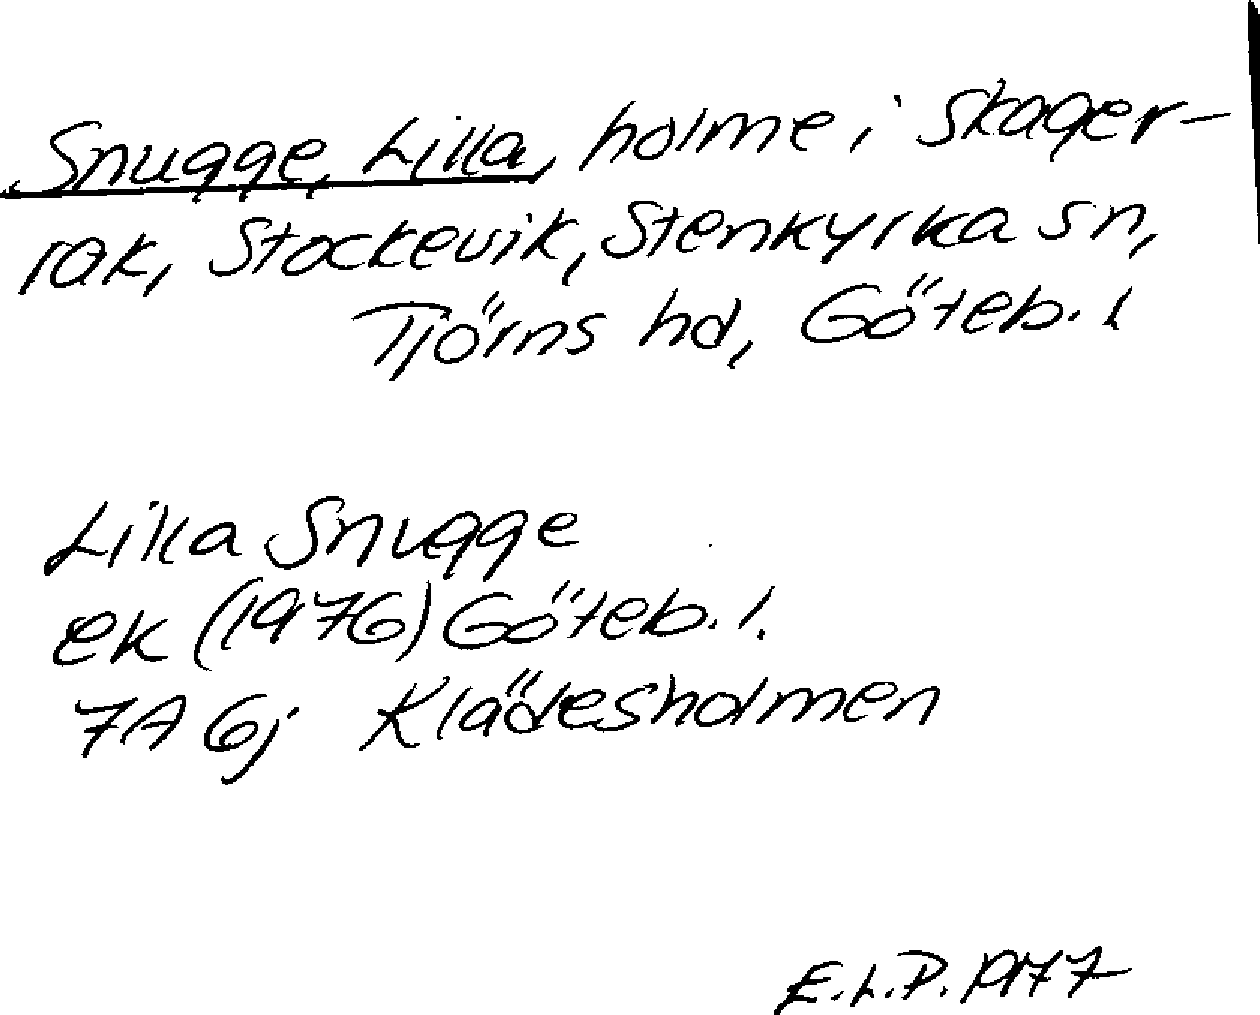 Snugge, Lilla, holme i Skager-
rak, Stockevik, Stenkyrka sn,
Tjörns hd, Göteb. l
Lilla Snugge
ek (1976) Göteb. l.
7A 6j Klädesholmen
E.L.P. 1977